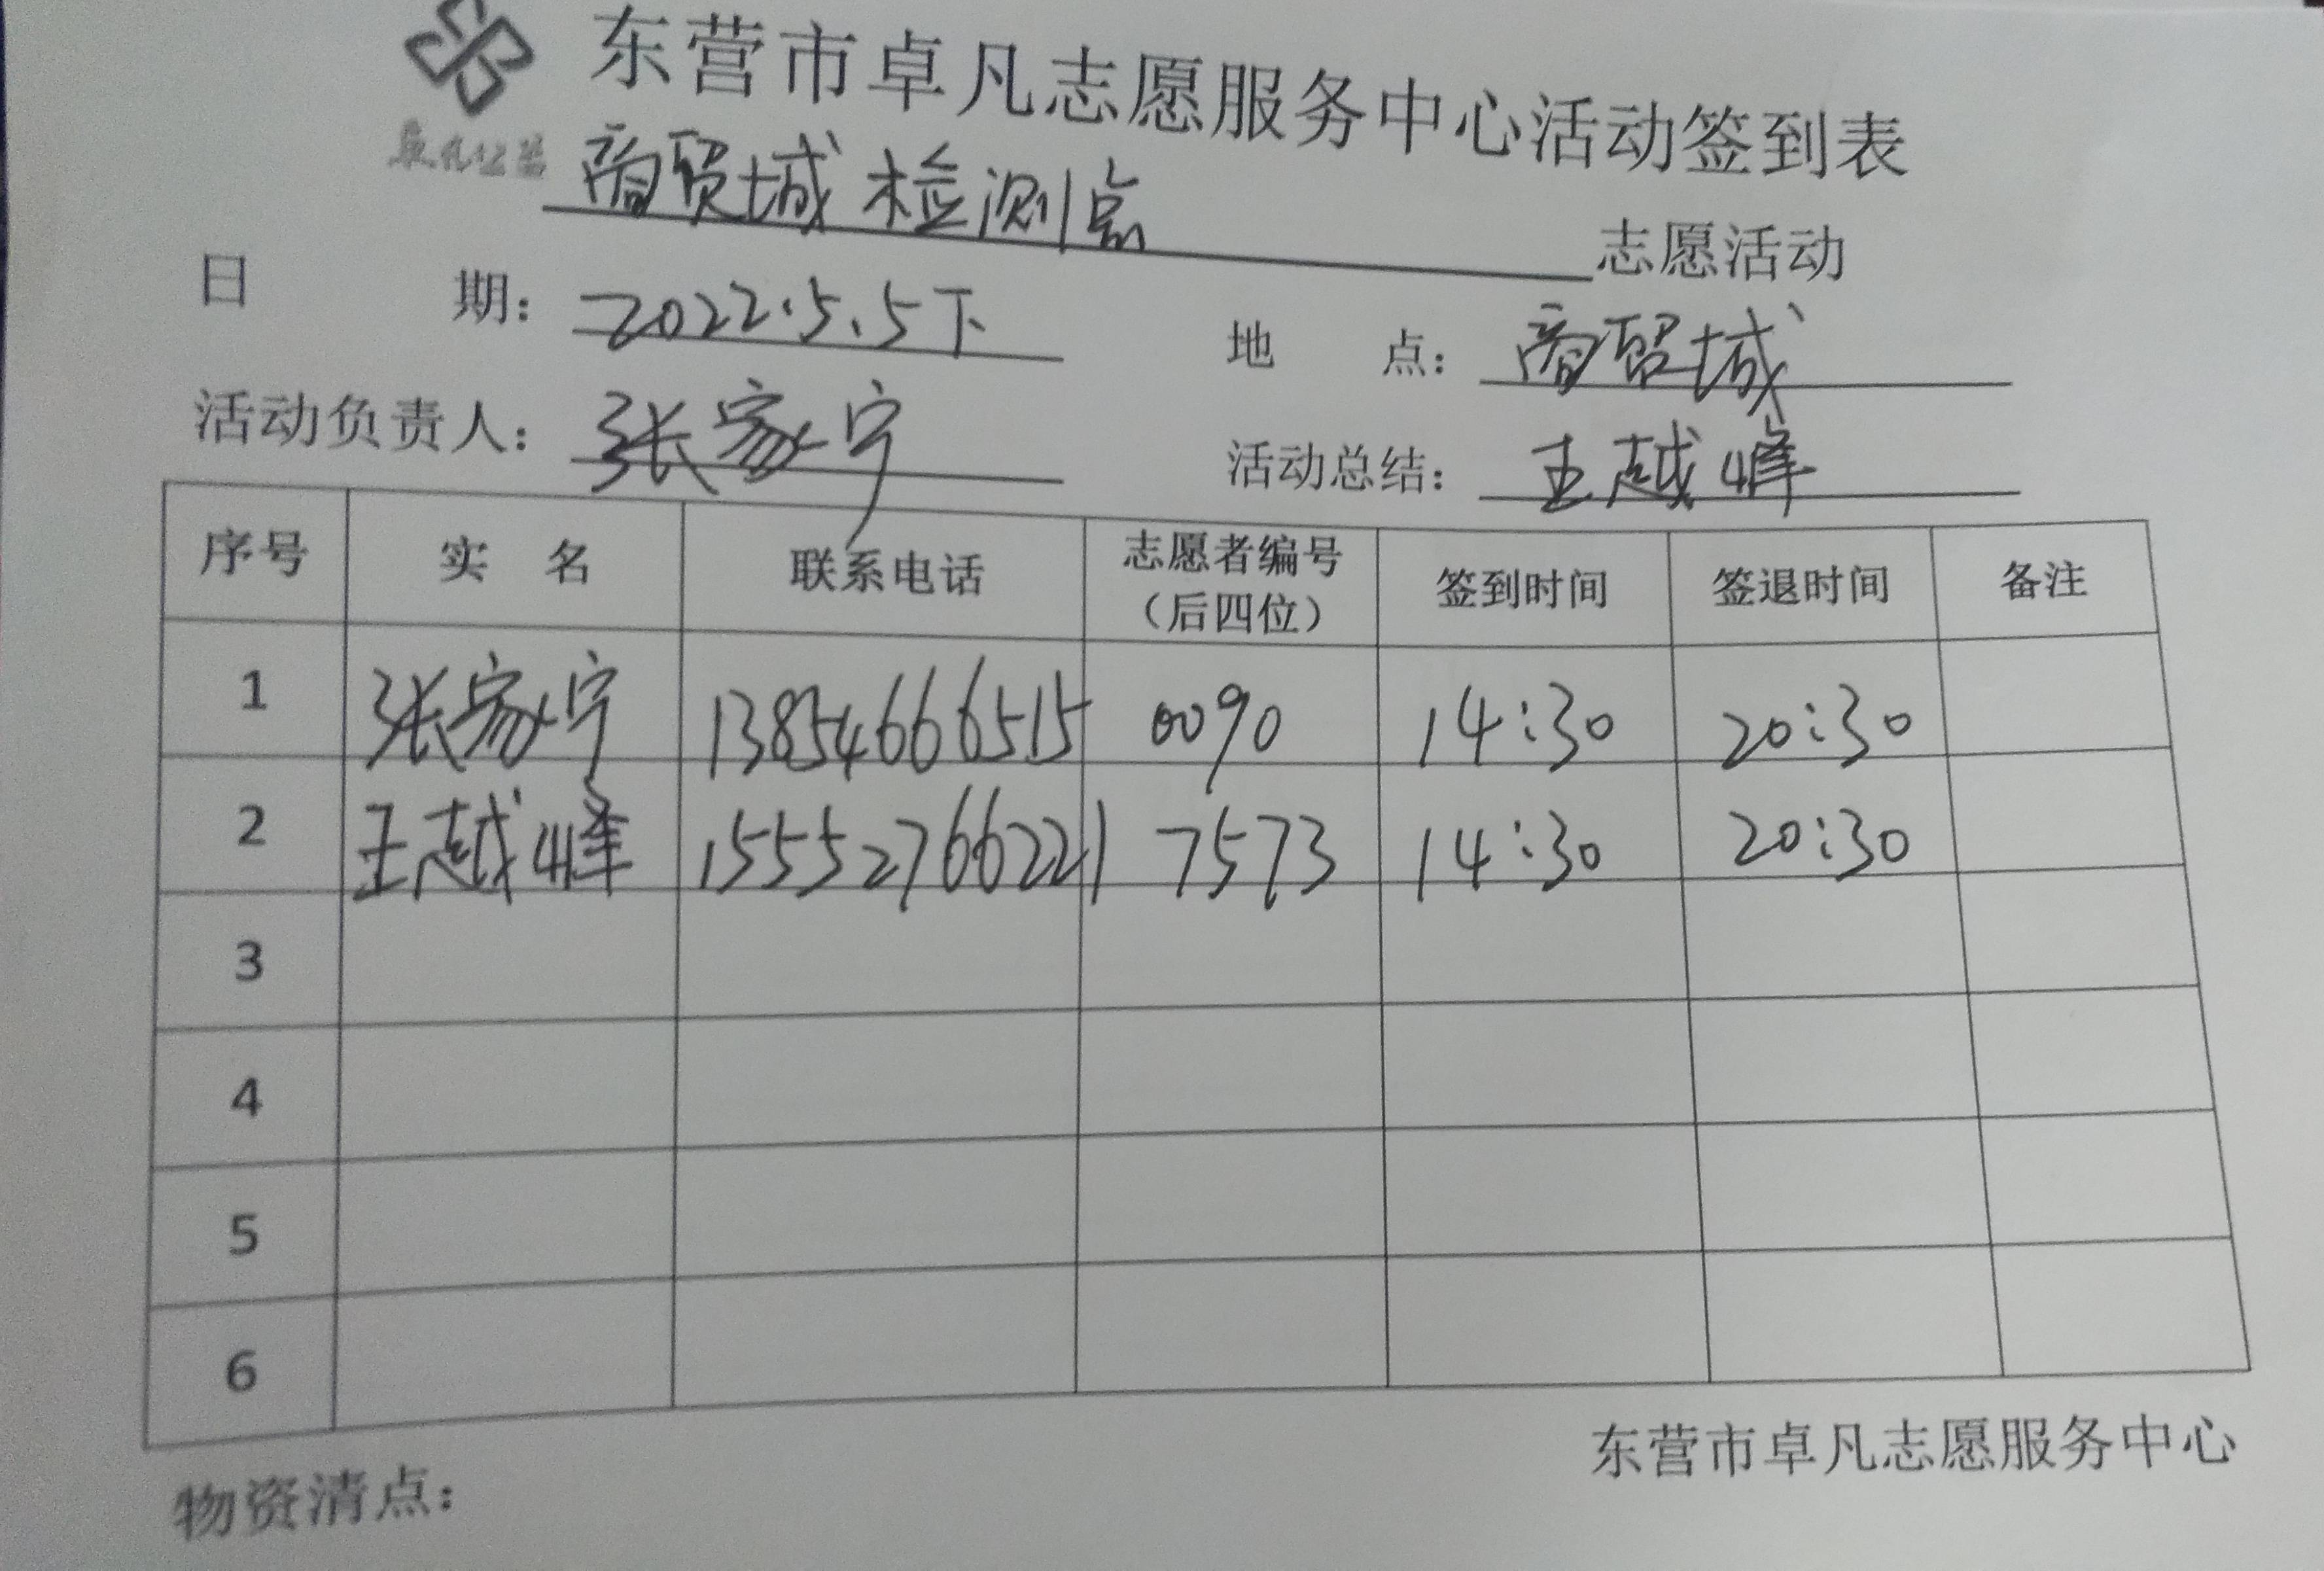 东营市卓凡志愿服务中心活动签到表
卓凡公益
商贸城检测点 志愿活动
日 期: 2022.5.5下 地 点: 商贸城
活动负责人: 张家宁 活动总结: 王越峰
序号 实 名 联系电话 志愿者编号（后四位） 签到时间 签退时间 备注
1 张家宁 13854666515 0090 14:30 20:30
2 王越峰 15552766221 7573 14:30 20:30
3
4
5
6
东营市卓凡志愿服务中心
物资清点: